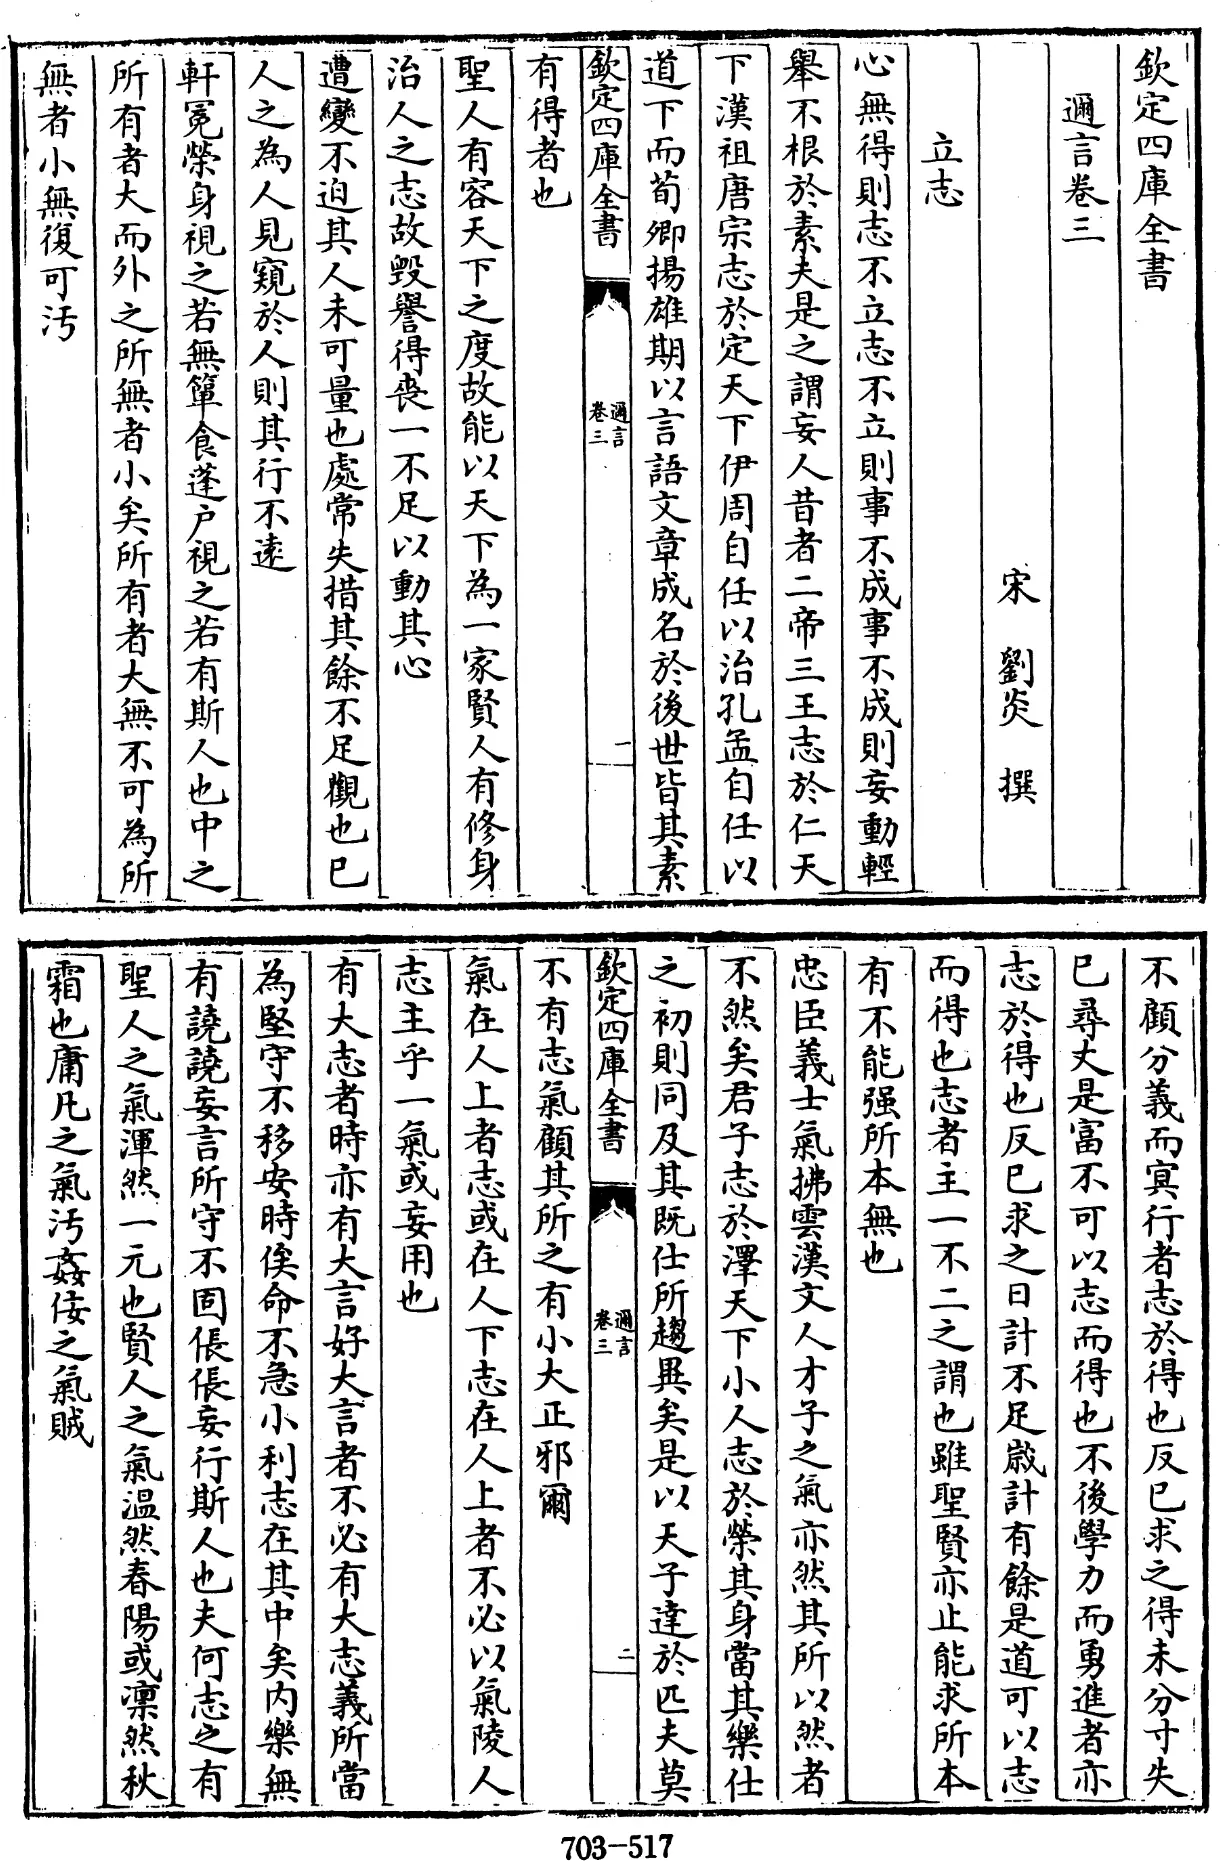 欽定四庫全書
邇言卷三
宋 劉炎 撰
立志
心無得則志不立志不立則事不成事不成則妄動輕
舉不根於素夫是之謂妄人昔者二帝三王志於仁天
下漢祖唐宗志於定天下伊周自任以治孔孟自任以
道下而荀卿揚雄期以言語文章成名於後世皆其素
欽定四庫全書
邇言
卷三
一
有得者也
聖人有容天下之度故能以天下為一家賢人有修身
治人之志故毀譽得喪一不足以動其心
遭變不迫其人未可量也處常失措其餘不足觀也已
人之為人見窺於人則其行不遠
軒冕榮身視之若無簞食蓬户視之若有斯人也中之
所有者大而外之所無者小矣所有者大無不可為所
無者小無復可汚
不顧分義而冥行者志於得也反已求之得未分寸失
已尋丈是富不可以志而得也不後學力而勇進者亦
志於得也反已求之日計不足歲計有餘是道可以志
而得也志者主一不二之謂也雖聖賢亦止能求所本
有不能强所本無也
忠臣義士氣拂雲漢文人才子之氣亦然其所以然者
不然矣君子志於澤天下小人志於榮其身當其樂仕
之初則同及其既仕所趨異矣是以天子達於匹夫莫
欽定四庫全書
邇言
卷三
二
不有志氣顧其所之有小大正邪爾
氣在人上者志或在人下志在人上者不必以氣陵人
志主乎一氣或妄用也
有大志者時亦有大言好大言者不必有大志義所當
為堅守不移安時俟命不急小利志在其中矣内樂無
有譊譊妄言所守不固倀倀妄行斯人也夫何志之有
聖人之氣渾然一元也賢人之氣温然春陽或凛然秋
霜也庸凡之氣汚姦佞之氣賊
703-517